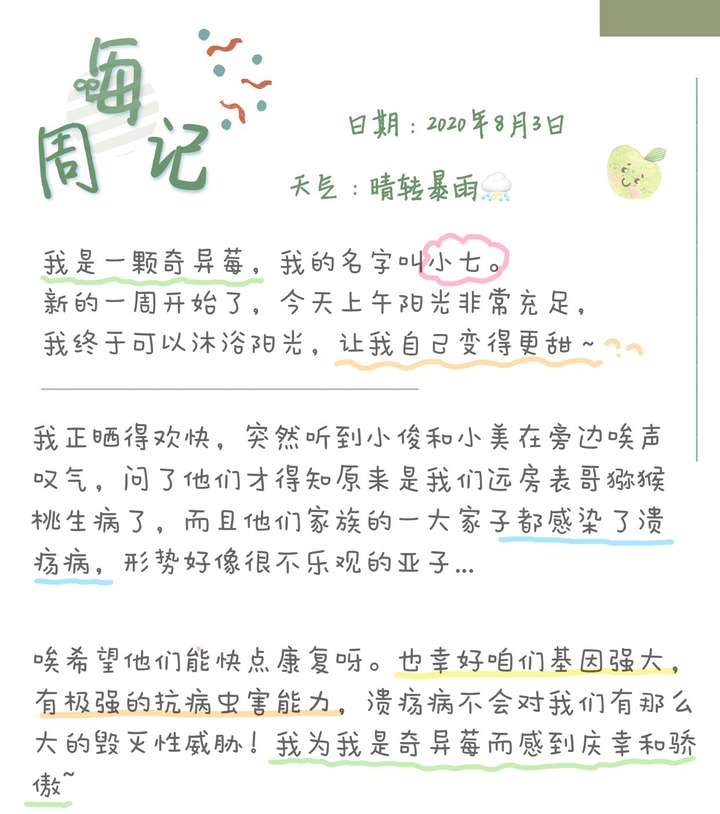 嗨
周记
日期：2020年8月3日
天气：晴转暴雨
我是一颗奇异莓，我的名字叫小七。
新的一周开始了，今天上午阳光非常充足，
我终于可以沐浴阳光，让我自己变得更甜~
我正晒得欢快，突然听到小俊和小美在旁边唉声
叹气，问了他们才得知原来是我们远房表哥猕猴
桃生病了，而且他们家族的一大家子都感染了溃
疡病，形势好像很不乐观的亚子...
唉希望他们能快点康复呀。也幸好咱们基因强大，
有极强的抗病虫害能力，溃疡病不会对我们有那么
大的毁灭性威胁！我为我是奇异莓而感到庆幸和骄
傲~